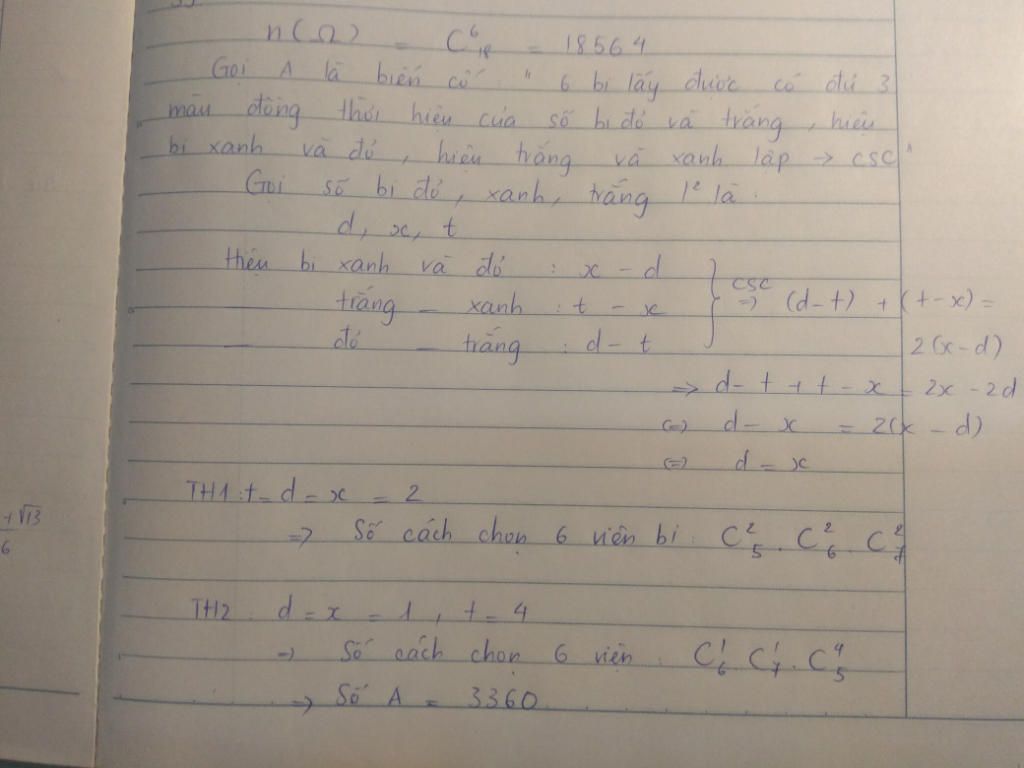 n(Ω) = C⁶₁₈ = 18564
Gọi A là biến cố " 6 bi lấy được có đủ 3
màu đồng thời hiệu của số bi đỏ và trắng, hiệu
bi xanh và đỏ, hiệu trắng và xanh lập → CSC"
Gọi số bi đỏ, xanh, trắng l² là :
d, x, t
Hiệu bi xanh và đỏ : x - d
trắng - xanh : t - x } CSC ⇒ (d-t) + (t-x) =
đỏ - trắng : d - t 2(x-d)
⇒ d - t + t - x = 2x - 2d
⇔ d - x = 2(x - d)
⇔ d = x
TH1 : t = d = x = 2
+√13
6
⇒ Số cách chọn 6 viên bi : C²₅ . C²₆ . C²₇
TH2 : d = x = 1, t = 4
⇒ Số cách chọn 6 viên : C¹₆ C¹₇ . C⁴₅
⇒ Số A = 3360